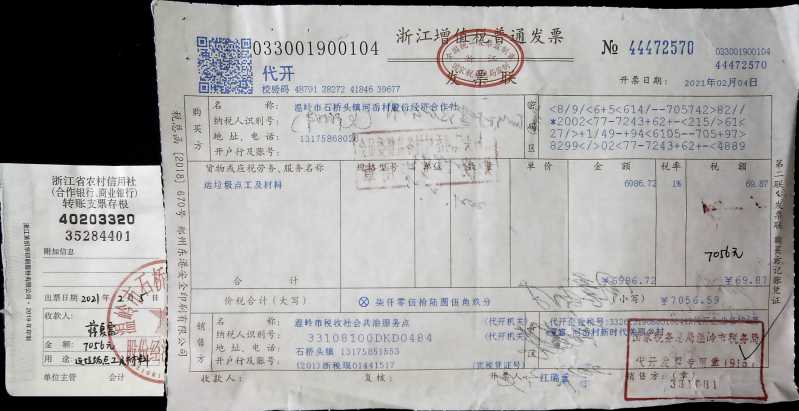 浙江省农村信用社
(合作银行、商业银行)
转账支票存根
40203320
35284401
附加信息
出票日期 2021年2月5日
收款人:
金 额: 7056元
用 途:
单位主管 会计
033001900104
浙江增值税普通发票
发票联
代开
校验码 48791 38272 41846 39677
№ 44472570
033001900104
44472570
开票日期: 2021年02月04日
税总函[2018]670号
购买方
名 称: 温岭市石桥头镇河岙村股份经济合作社
纳税人识别号:
地 址、电 话:
开户行及账号:
密码区
<8/9/<6+5<614/--705742>82//
*2002<77-7243+62+-<215/>61<
27/>+1/49-+94+6105--705+97>
8299</>02<77-7243+62+-<4889
货物或应税劳务、服务名称 规格型号 单位 数量 单价 金额 税率 税额
运垃圾点工及材料 6986.72 1% 69.87
7056元
合 计 ¥6986.72 ¥69.87
价税合计(大写) ⊗柒仟零伍拾陆圆伍角玖分 (小写) ¥7056.59
销售方
名 称: 温岭市税收社会共治服务点 (代开机关)
纳税人识别号: 33108100DKD0484 (代开机关)
地 址、电 话: 石桥头镇 13175851553
开户行及账号: (201)浙税现01441517 (完税凭证号)
国家税务总局温岭市税务局
代开发票专用章
331081
收款人: 复核: 开票人: 销售方:(章)
第二联:发票联 购买方记账凭证